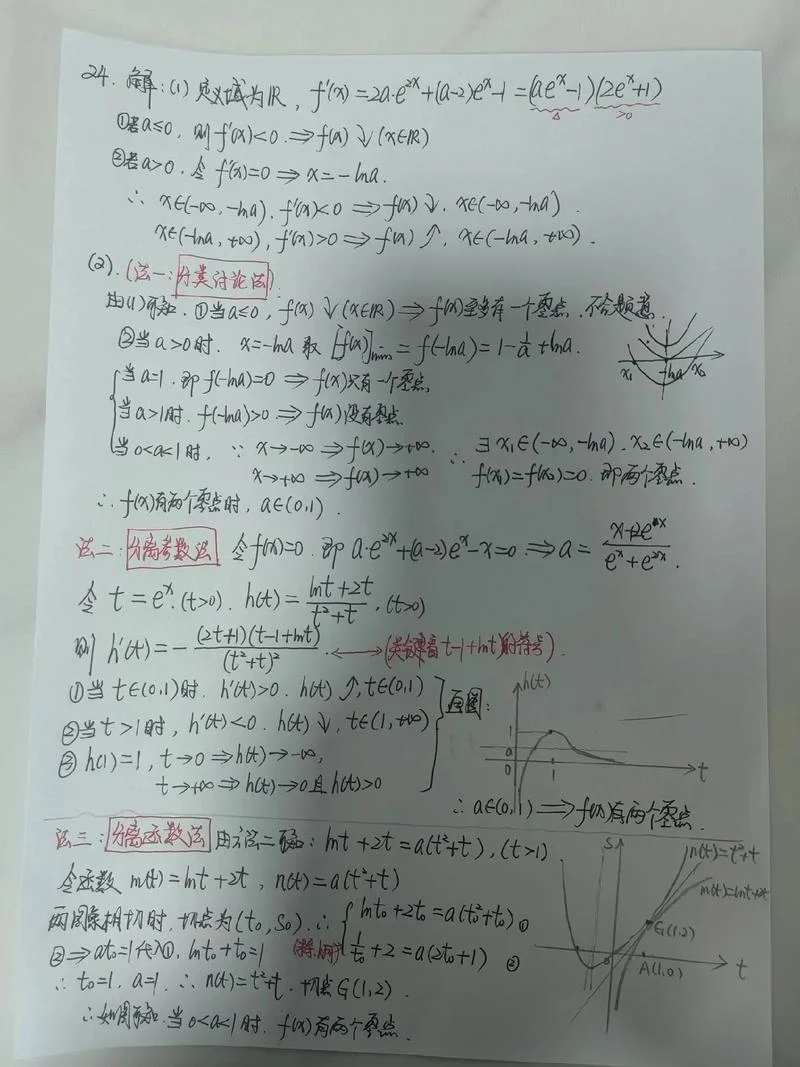 24. 解:(1) 定义域为R, f'(x)=2a·e^{2x}+(a-2)e^x-1=(ae^x-1)(2e^x+1)
△ >0
①若a≤0, 则f'(x)<0 ⇒ f(x)↓(x∈R)
②若a>0, 令f'(x)=0 ⇒ x=-lna.
∴ x∈(-∞,-lna), f'(x)<0 ⇒ f(x)↓, x∈(-∞,-lna).
x∈(-lna,+∞), f'(x)>0 ⇒ f(x)↑, x∈(-lna,+∞).
(2). (法一: 分类讨论法)
由(1)可知. ①当a≤0, f(x)↓(x∈R) ⇒ f(x)至多有一个零点, 不合题意.
②当a>0时, x=-lna 取[f(x)]min=f(-lna)=1-1/a+lna.
x₁ -lna x₂
当a=1, 即f(-lna)=0 ⇒ f(x)只有一个零点,
当a>1时, f(-lna)>0 ⇒ f(x)没有零点
当0<a<1时, ∵ x→-∞ ⇒ f(x)→+∞. ∴ ∃x₁∈(-∞,-lna), x₂∈(-lna,+∞)
x→+∞ ⇒ f(x)→+∞ f(x₁)=f(x₂)=0. 即两个零点.
∴ f(x)有两个零点时, a∈(0,1).
法二: 分离参数法 令f(x)=0, 即a·e^{2x}+(a-2)e^x-x=0 ⇒ a=(x+2e^x)/(e^x+e^{2x}).
令t=e^x.(t>0). h(t)=(lnt+2t)/(t²+t), (t>0)
则h'(t)=-(2t+1)(t-1+lnt)/(t²+t)². ⟷ (关键看t-1+lnt的符号).
①当t∈(0,1)时. h'(t)>0. h(t)↑, t∈(0,1) 画图:
②当t>1时, h'(t)<0. h(t)↓, t∈(1,+∞)
③h(1)=1, t→0 ⇒ h(t)→-∞,
t→+∞ ⇒ h(t)→0且h(t)>0
h(t) 1 a 0 1 t
∴ a∈(0,1) ⇒ f(x)有两个零点.
法三: 分离函数法 由方法二可知: lnt+2t=a(t²+t), (t>1)
令函数m(t)=lnt+2t, n(t)=a(t²+t)
两图象相切时, 切点为(t₀,S₀). ∴ { lnt₀+2t₀=a(t₀²+t₀) ①
②⇒at₀=1代入①, lnt₀+t₀=1 1/t₀+2=a(2t₀+1) ②
∴ t₀=1, a=1. ∴ n(t)=t²+t. 切点G(1,2).
∴如图可知. 当0<a<1时, f(x)有两个零点.
S n(t)=t²+t
m(t)=lnt+2t
G(1,2)
0 A(1,0) t